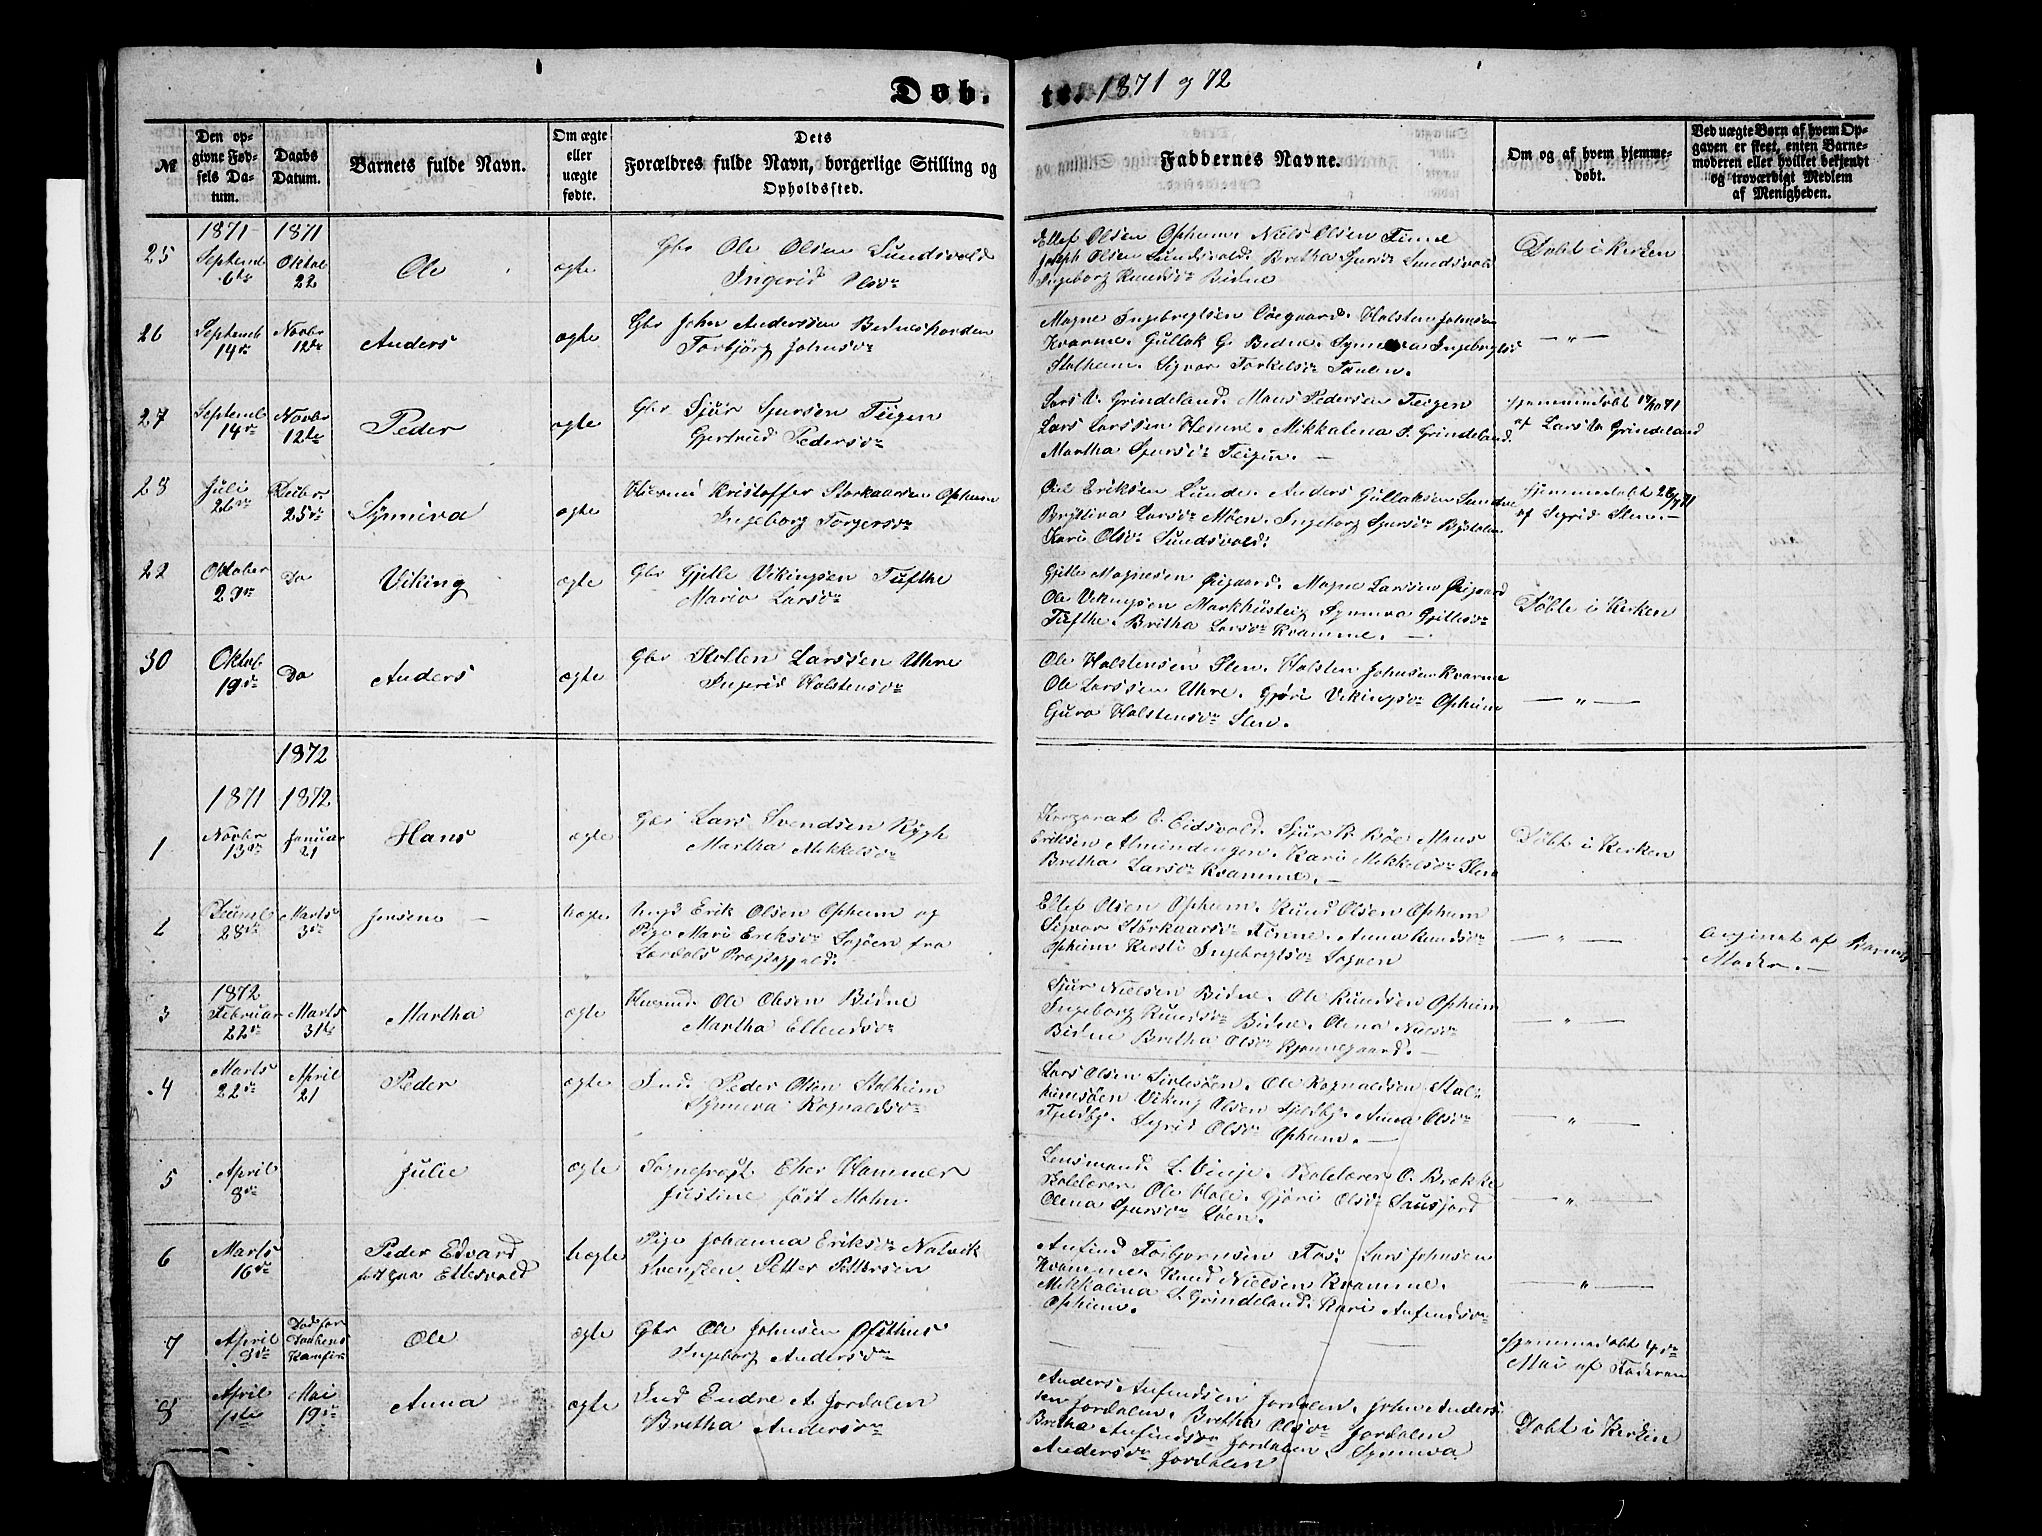 Døb. te. 1871 g 72
№
Den op-
givne Fød-
sels Da-
tum.
Daabs
Datum.
Barnets fulde Navn.
Om ægte
eller
uægte
fødte.
Dets
Forældres fulde Navn, borgerlige Stilling og
Opholdssted.
Faddernes Navne.
Om og af hvem hjemme-
døbt.
Ved uægte Børn af hvem Op-
gaven er skeet, enten Barne-
moderen eller hvilket bekjendt
og troværdigt Medlem
af Menigheden.
1871 1871
25 Septemb 6te Oktob 22 Ole ægte
Gbr Ole Olsen Sundsvold
Ingerid Olsdr
Ellef Olsen Opheim. Niels Olsen Finne
Joseph Olsen Sundsvold. Bretha Sjursdr Sundsvold
Ingeborg Knudsdr Bidne
Døbt i Kirken
26 Septemb 14de Novbr 12te Anders ægte
Gbr John Anderssen
Torbjørg Johnsdr
Magne Ingebrigtsen Holsten Johnsen
Kvarme. Gullak G. Bidne. Synneva
Stalheim. Sigvor Torkelsdr
— " —
27 Septemb 14de Novbr 12te Peder ægte
Gbr Sjur Sjursen Teigen
Gertrud Pedersdr
Lars Grindeland. Mons Pedersen Teigen
Lars Larssen Hemre. Mikkalena S. Grindeland.
Martha Sjursdr Teigen. —
Hjemmedøbt 17/10 71
af Lars Grindeland
28 Juli 26de 25de Synneva ægte
Husmd Kristoffer Storkaarsen Opheim
Ingeborg Torgersdr
Eriksen Lunde. Anders Gullaksen
Larsdr Møen. Ingeborg Sjursdr
Kari Olsdr Sundsvold.
Hjemmedøbt
af Sigrid Sten. —
22 Oktober 29de Do Viking ægte
Gbr Gjetle Vikingsen Tufthe
Maria Larsdr
Gjetle Magnesen Magne Larssen
Ole Vikingsen Synneva Gjetlesdr
Tufthe. Britha Larsdr Kvamme. —
Døbte i Kirken
30 Oktob 19de Do Anders ægte
Gbr Larssen Uhre
Ingerid Holstensdr
Ole Holstensen Sten. Holsten Johnsen Kvarme
Ole Larssen Uhre. Gjøri Vikingsdr Opheim
Guro Holstensdr Sten.
— " —
1872
1871 1872
1 Novbr 13de Januar 21 Hans ægte
Gbr Lars Svendsen Rygh
Martha Mikkelsdr
E. Eidsvold. Sjur K. Bøe. Mons
Eriksen Almindengen. Kari Mikkelsdr Sten
Bretha Larsdr Kvamme. —
Døbt i Kirken
2 28de Marts 3de Jensine — uægte
Ungd Erik Olsen Opheim og
Pige Mari Eriksdr fra
Lærdals Præstegjeld.
Ellef Olsen Opheim. Knud Olsen Opheim
Sigvor Storkaarsdr Finne. Anna Knudsdr
Opheim Kersti Ingebrigtsdr
— " —
Angivet af Barnets
Moder. —
1872
3 Februar 22de Marts 31te Martha ægte
Husmd Ole Olsen Bidne
Martha Ellendsdr
Sjur Nielsen Bidne. Ole Knudsen Opheim
Ingeborg Knudsdr Bidne. Olena Nielsdr
Bidne Bretha Olsdr
— " —
4 Marts 22de April 21 Peder ægte
Ind. Peder Olsen Stalheim
Synneva Rognaldsdr
Lars Olsen Ole Rognaldsen Stal-
heimsøen Viking Olsen Anna Olsdr
Sigrid Olsdr Opheim. —
— " —
5 April 8de Julie ægte
Sogneprest Hammer
Justine født Mohn
Lensmand L. Vinje. Skolelærer O. Brekke
Skolelærer Ole Gjøri Olsdr
Olena Sjursdr
— " —
6 Marts 16de Peder Edvard uægte
Pige Johanna Eriksdr Natvik
Svensken Petter Pettersen
Anfind Torbjørnsen Lars Johnsen
Kvamme. Knud Nielsen Kvamme.
Mikkalina S. Grindeland. Kari Anfindsdr
Opheim.
— " —
7 April 9de Død før Daabens Ole ægte
Gbr Ole Johnsen
Ingeborg Andersdr
Hjemmedøbt 4de
Mai af Faderen
8 April 1ste Mai 19de Anna ægte
Ind Endre A. Jordalen
Bretha Andersdr
Anders Anfindsen Jordalen. John Anders-
sen Jordalen. Bretha Olsdr Jordalen
Bretha Anfindsdr Jordalen Synneva
Andersdr Jordalen
Døbt i Kirken